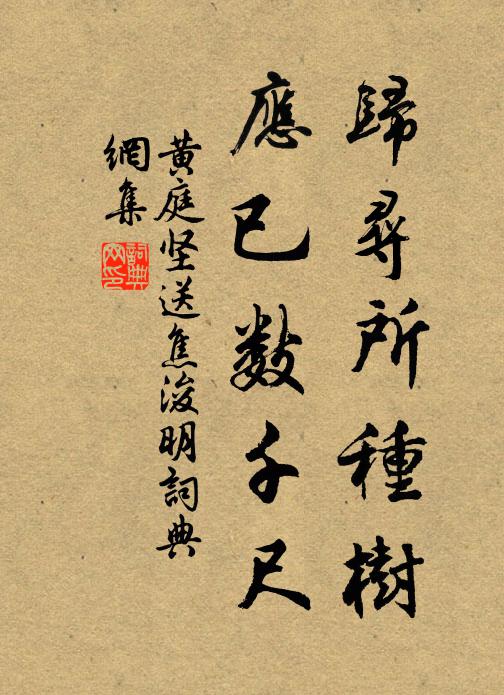 歸尋所種樹
應已數千尺
黄庭坚送焦浚明詞典
網集
詞典
网印